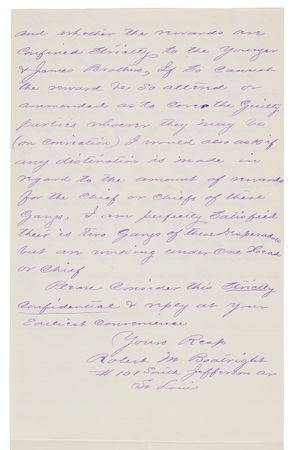 and whether the rewards are
Confined Strictly to the Younger
& James Brothers, If So Cannot
the reward be So altered or
ammended as to Cover the Guilty
parties whoever they may be
(on Conviction) I would also ask if
any distinction is made in
regard to the amount of rewards
for the Chief or Chiefs of these
Gangs, I am perfectly Satisfied
their is Two Gangs of these Desperados
but an working under One Head
or Chief
Please Consider this Strictly
Confidential & reply at your
Earliest Convenience
Yours Resp
Robert M Boatright
#101 South Jefferson av
St Louis